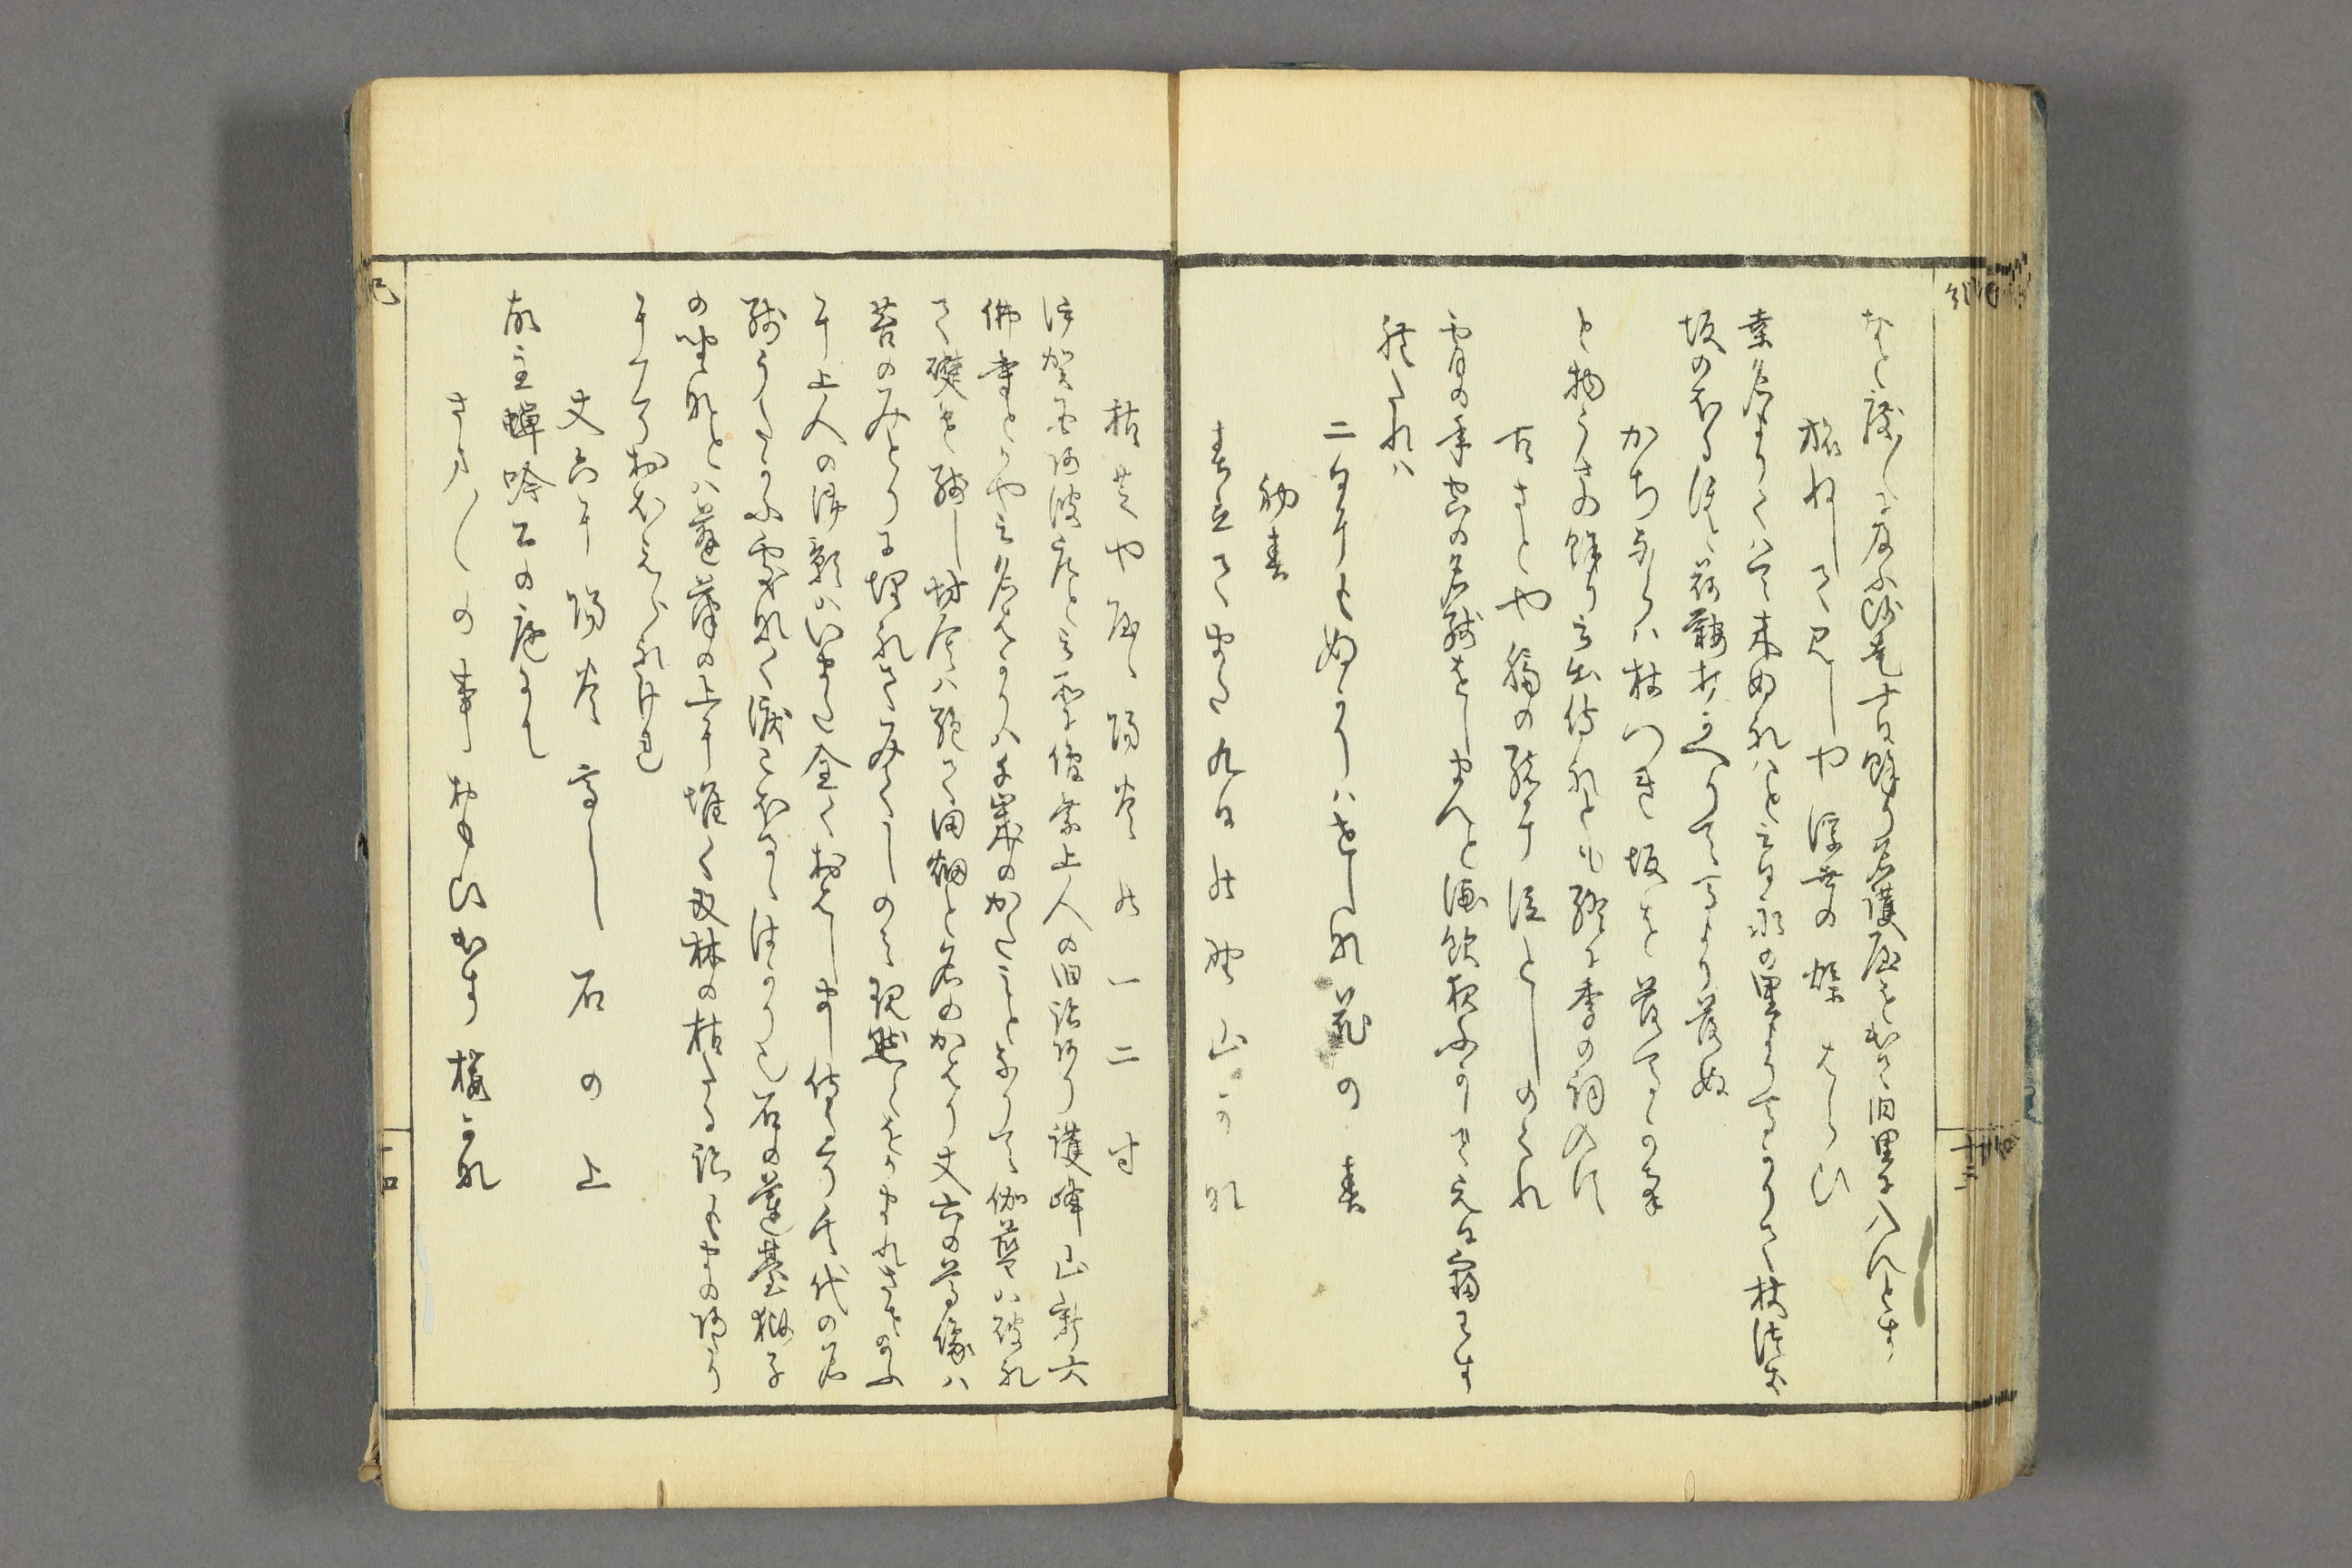 なと聞しに及ふ師走十日餘り名護屋を出て旧里に入んとす
旅ねして見しや浮世の煤はらひ
桑名よりくはて来ぬれはと云日永の里より馬かりて杖つき
坂の のほるほと荷鞍打かへりて馬より落ぬ
かちならは杖つき坂を落馬かな
と物うさの餘り云出侍れとも終に季の詞いらす
古さとや臍の緒に泣としのくれ
宵の年空の名殘おしまんと酒飲夜ふかして元日寐わす
れたれは
二日にもぬかりはせしな花の春
初春
春立てまた九日の野山かな
枯芝ややゝ陽炎の一二寸
伊賀の国阿波庄と云所に俊乗上人の旧跡有護峰山新大
佛寺とかや云名はかりは千歳のかたみとなりて伽藍は破れ
て礎を殘し坊舎は絶て田畑と名のかはり丈六の尊像は
苔のみとりに埋れて御くしのみ現然とをかまれさせ給ふ
に上人の御影はいまた全くおはしまし侍るそ其代の名
殘うたかふ所なく泪こほるゝ計也石の蓮臺獅子
の座なとは蓬葎の上に堆く双林の枯たる跡もまのあたり
にこそおほえられけれ
丈六に陽炎高し石の上
故主蟬吟公の庭にて
さま〳〵の事おもひ出す櫻かな
十三